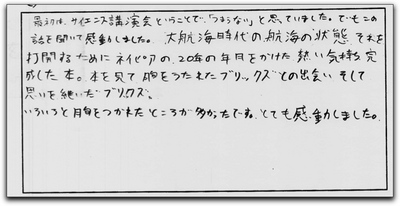 最初は、サイエンス講演会ということで、「つまらない」と思っていました。でもこの
話を聞いて感動しました。大航海時代の航海の状態、それを
打開するためにネイピアの、20年の年月をかけた熱い気持ち、完
成した本。本を見て胸をうたれたブリッグズとの出会い そして
思いを継いだブリグズ。
いろいろと胸をつかれたところが多かったですね。とても感動しました。